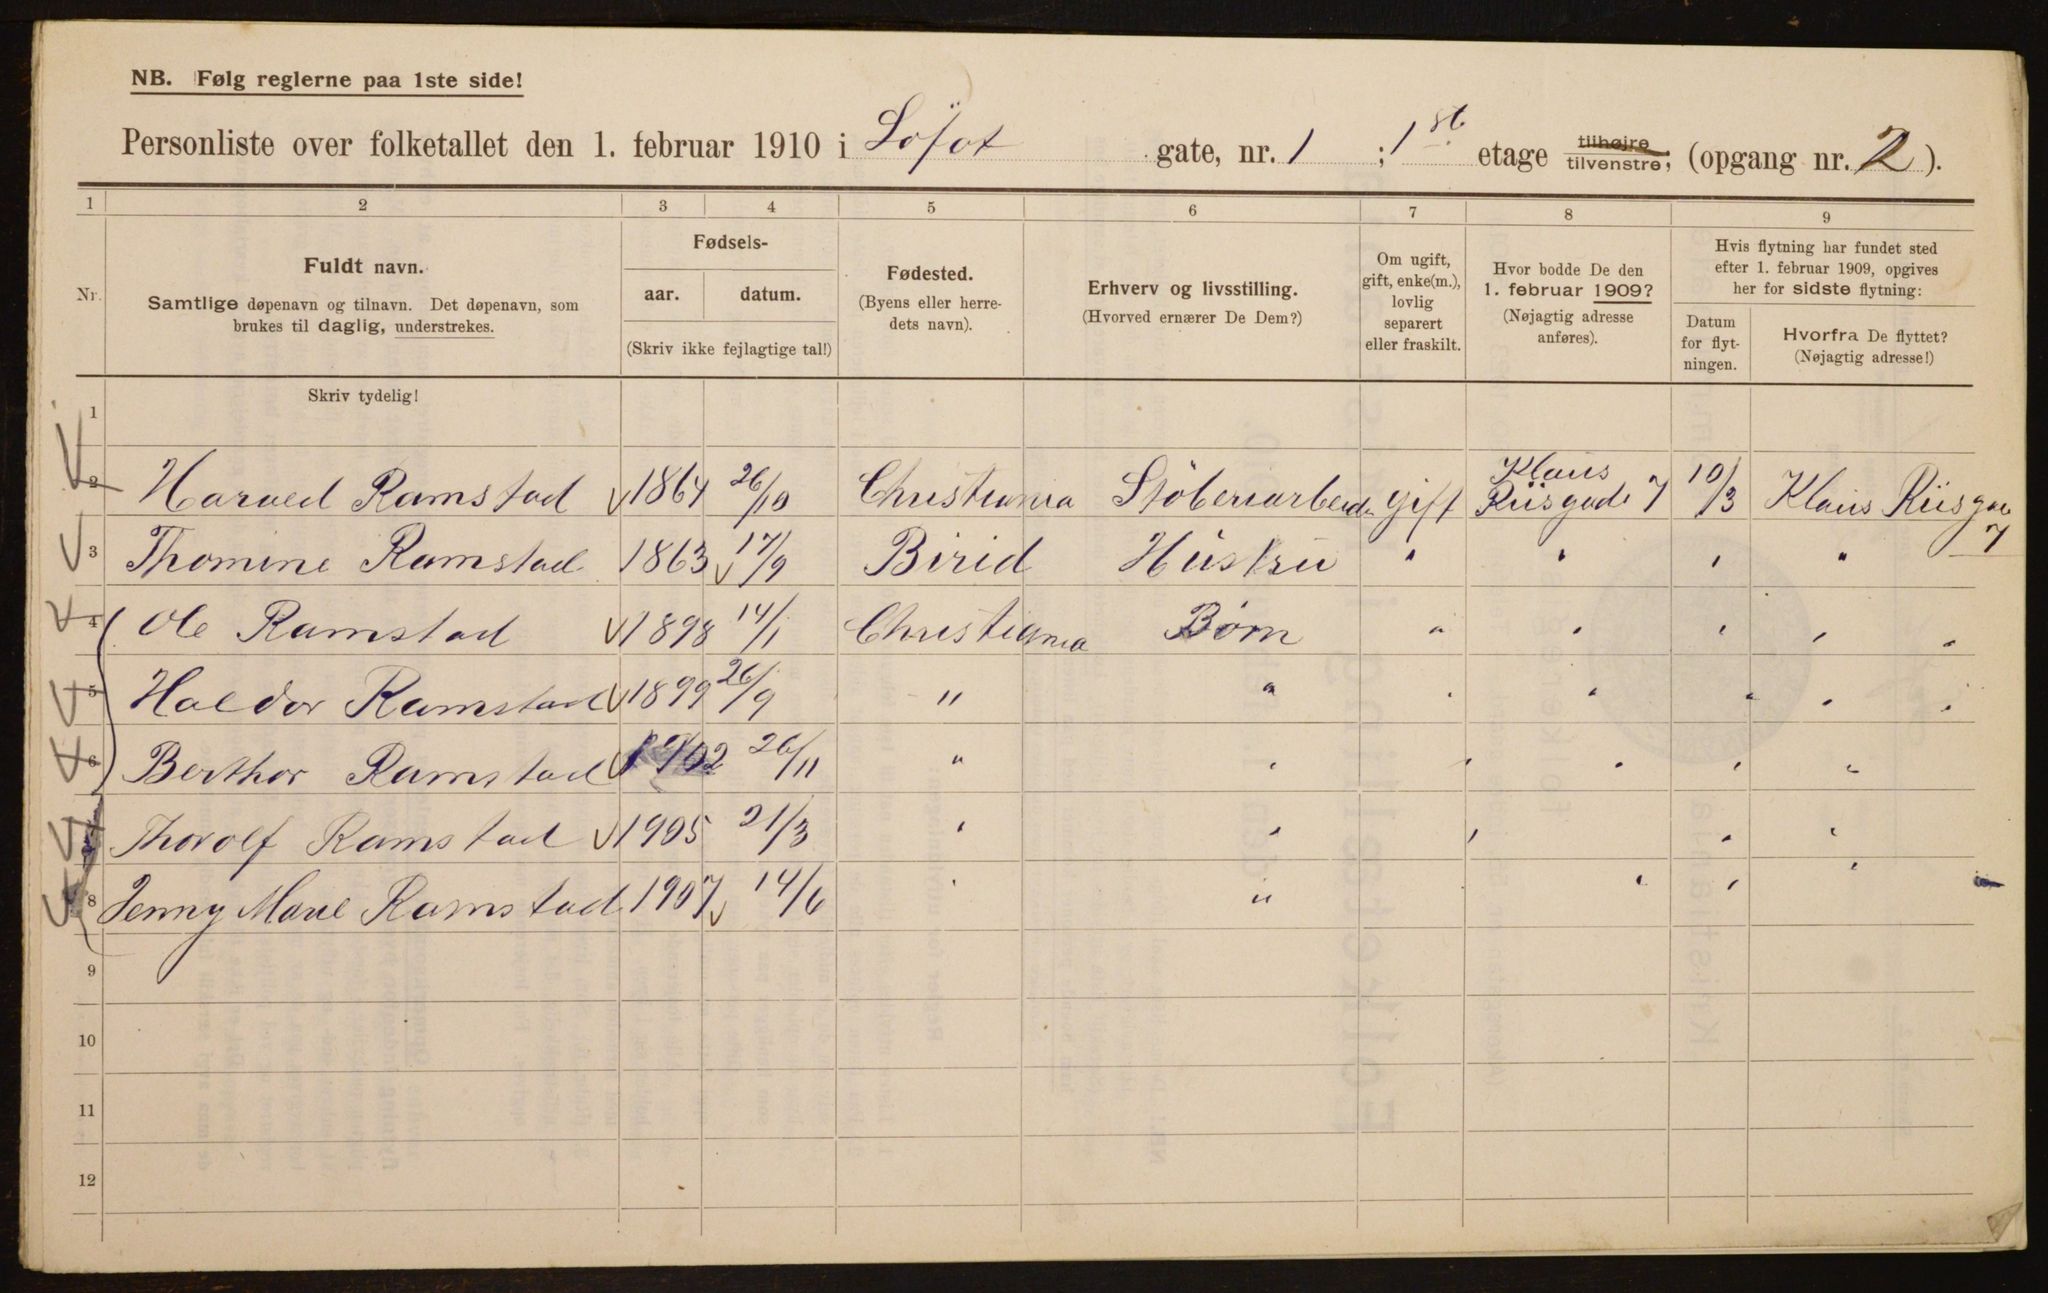 NB. Følg reglerne paa 1ste side!
Personliste over folketallet den 1. februar 1910 i Lofot gate, nr. 1 ; 1 st etage tilhøjre/tilvenstre, (opgang nr. 2).
1 2 3 4 5 6 7 8 9
Nr.
Fuldt navn.
Samtlige døpenavn og tilnavn. Det døpenavn, som
brukes til daglig, understrekes.
Fødsels-
aar. datum.
(Skriv ikke fejlagtige tal!)
Fødested.
(Byens eller herre-
dets navn).
Erhverv og livsstilling.
(Hvorved ernærer De Dem?)
Om ugift,
gift, enke(m.),
lovlig
separert
eller fraskilt.
Hvor bodde De den
1. februar 1909?
(Nøjagtig adresse
anføres).
Hvis flytning har fundet sted
efter 1. februar 1909, opgives
her for sidste flytning:
Datum
for flyt-
ningen.
Hvorfra De flyttet?
(Nøjagtig adresse!)
Skriv tydelig!
1
2 Harald Ramstad 1864 26/10 Christiania Støberiarbeider gift Klaus Riisgade 7 10/3 Klaus Riisgae 7
3 Thomine Ramstad 1863 17/9 Birid Hustru " " " "
4 Ole Ramstad 1898 14/1 Christiania Børn " " " " "
5 Haldor Ramstad 1899 26/9 " " " " " " "
6 Berthor Ramstad 1902 26/11 " " " " " "
7 Thorolf Ramstad 1905 21/3 " " " " "
8 Jenny Marie Ramstad 1907 14/6 " " " " "
9
10
11
12